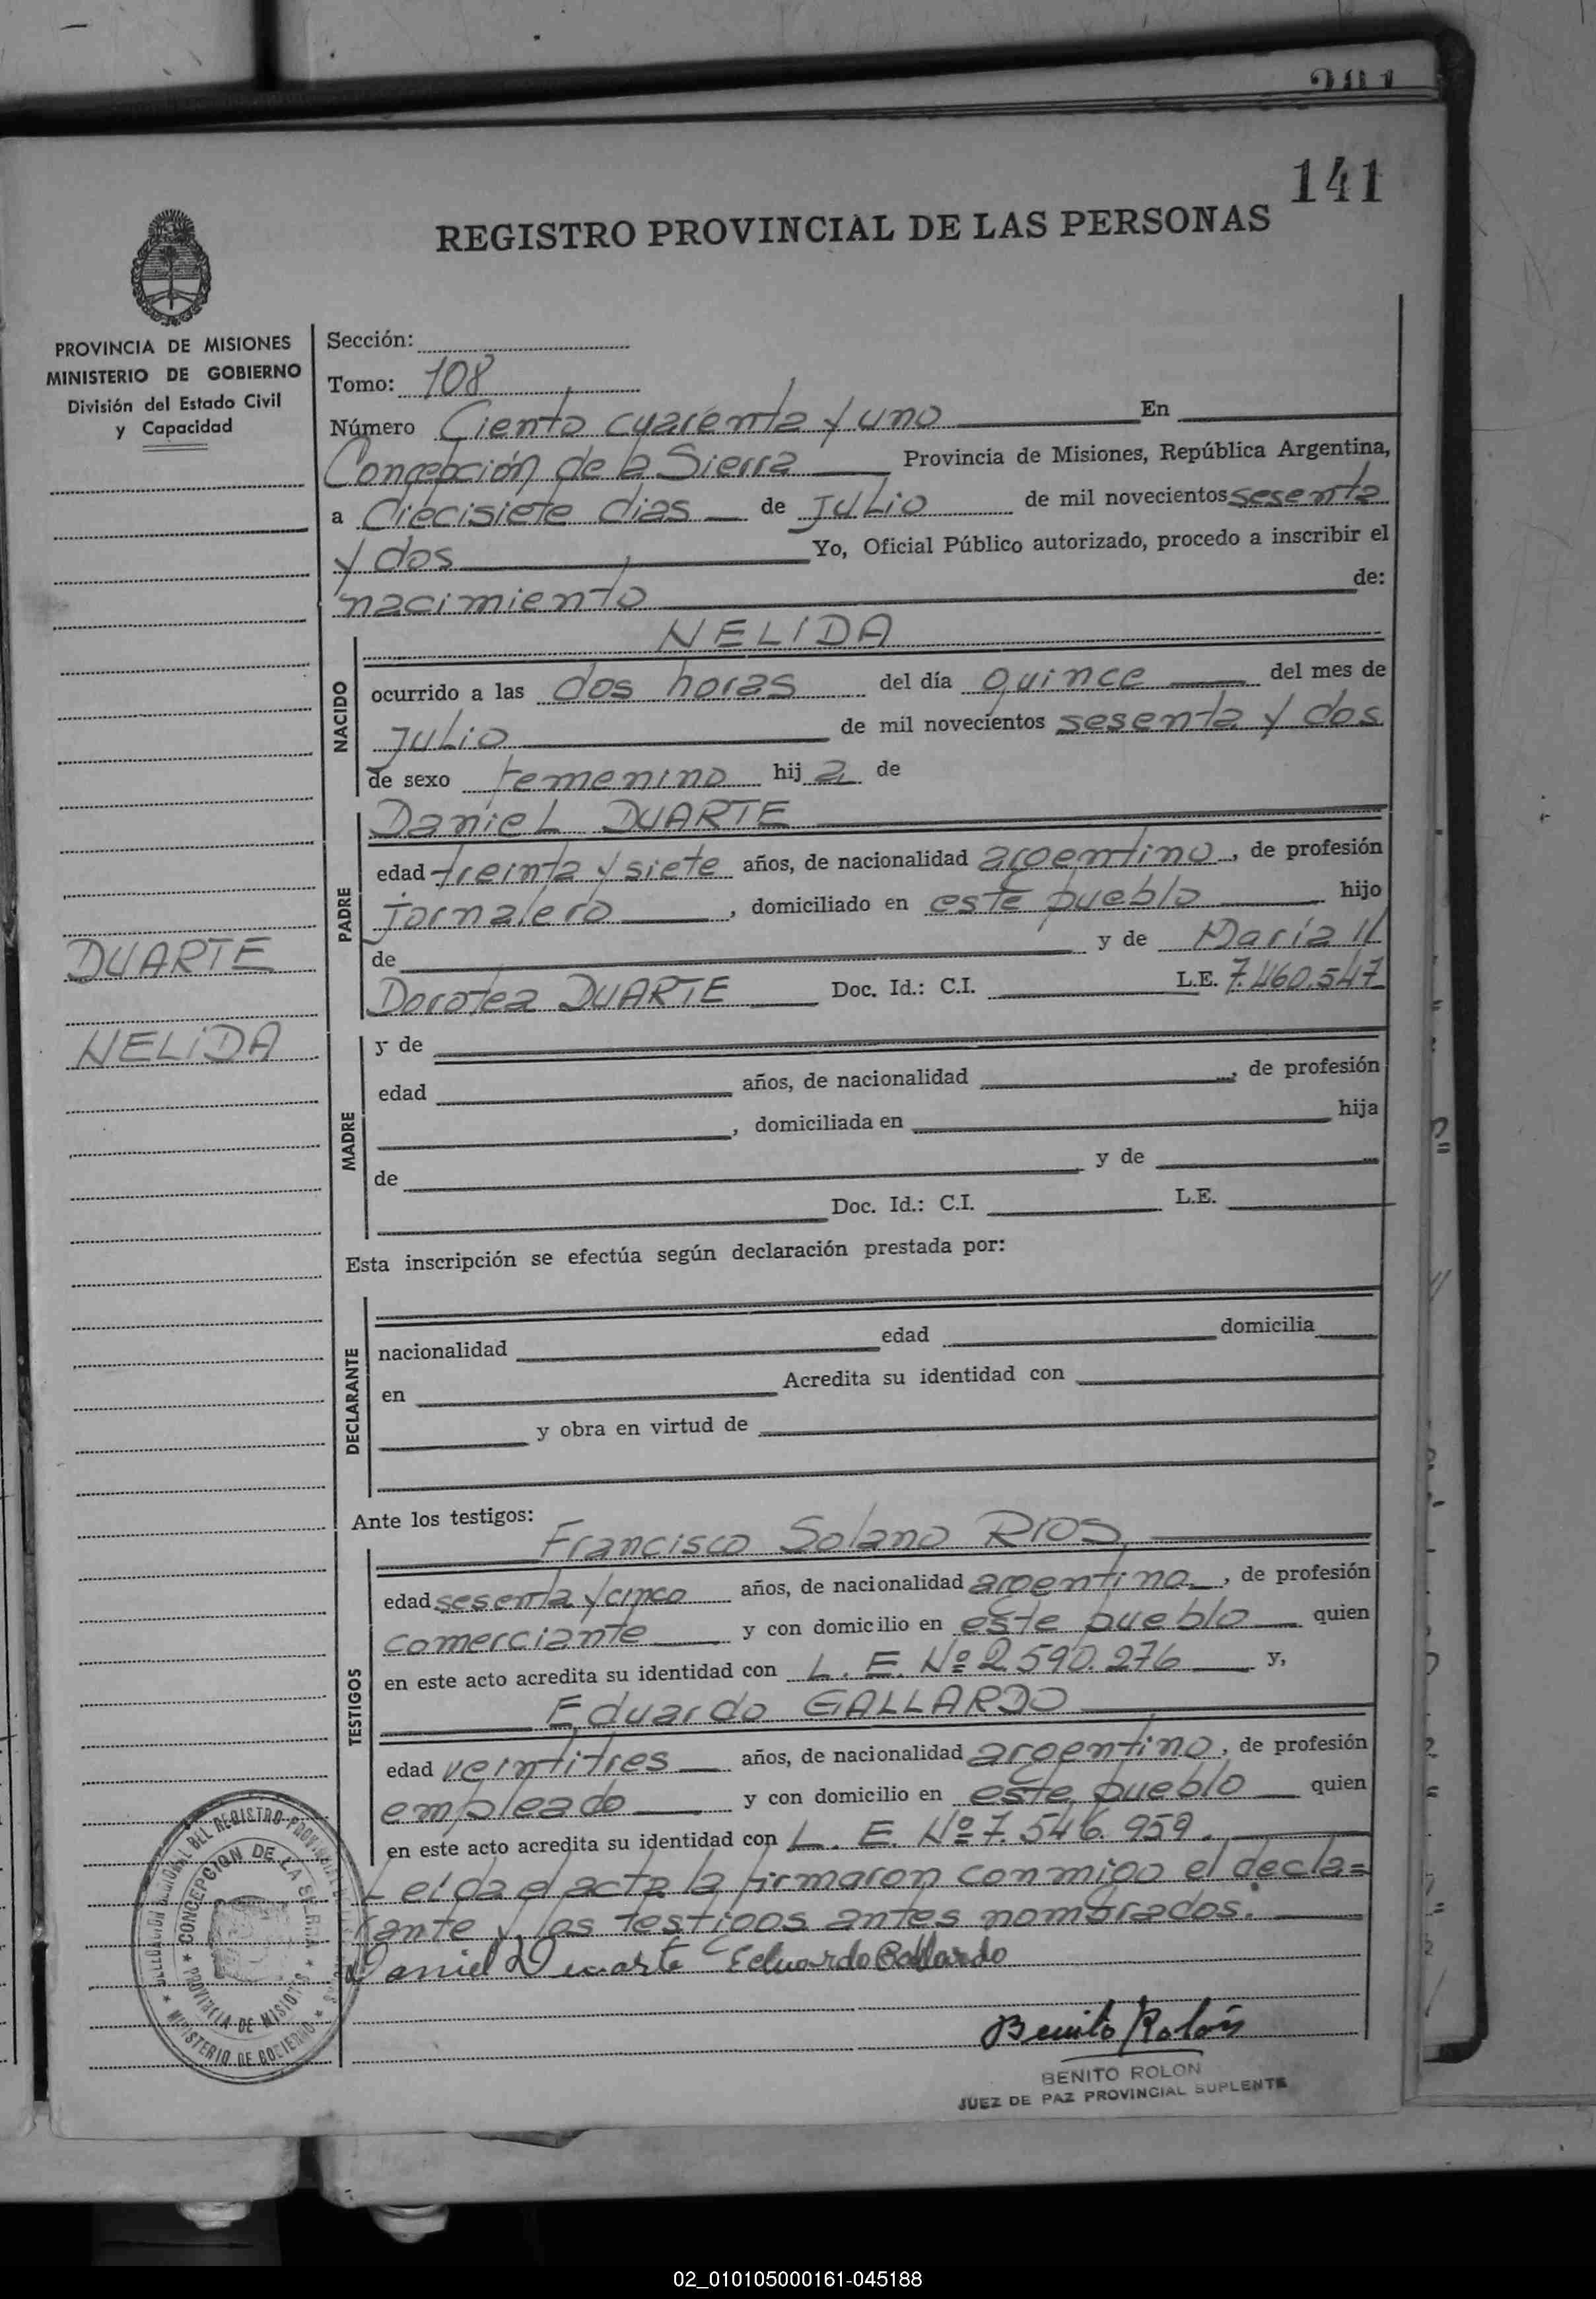 141
REGISTRO PROVINCIAL DE LAS PERSONAS
PROVINCIA DE MISIONES
MINISTERIO DE GOBIERNO
División del Estado Civil
y Capacidad
DUARTE
NELIDA
Sección:
Tomo: 108
Número Ciento cuarenta y uno En
Concepción de la Sierra Provincia de Misiones, República Argentina,
a diecisiete dias de Julio de mil novecientos sesenta
y dos Yo, Oficial Público autorizado, procedo a inscribir el
nacimiento de:
NACIDO
NELIDA
ocurrido a las dos horas del día quince del mes de
Julio de mil novecientos sesenta y dos
de sexo femenino hij a de
PADRE
Daniel DUARTE
edad treinta y siete años, de nacionalidad argentino, de profesión
jornalero, domiciliado en este pueblo hijo
de y de María
Dorotea DUARTE Doc. Id.: C.I. L.E. 7.460.547
MADRE
y de
edad años, de nacionalidad , de profesión
, domiciliada en hija
de y de
Doc. Id.: C.I. L.E.
Esta inscripción se efectúa según declaración prestada por:
DECLARANTE
nacionalidad edad domicilia
en Acredita su identidad con
y obra en virtud de
Ante los testigos:
TESTIGOS
Francisco Solano RIOS
edad sesenta y cinco años, de nacionalidad argentino, de profesión
comerciante y con domicilio en este pueblo quien
en este acto acredita su identidad con L. E. Nº 2.590.276 y,
Eduardo GALLARDO
edad veintitres años, de nacionalidad argentino, de profesión
empleado y con domicilio en este pueblo quien
en este acto acredita su identidad con L. E. Nº 7.546.959.
Leida el acta la firmaron conmigo el decla=
rante y los testigos antes nombrados.
Daniel Duarte Eduardo Gallardo
Benito Rolón
BENITO ROLON
JUEZ DE PAZ PROVINCIAL SUPLENTE
CONCEPCION DE LA SIERRA
PROVINCIA DE MISIONES
MINISTERIO DE GOBIERNO
02_010105000161-045188